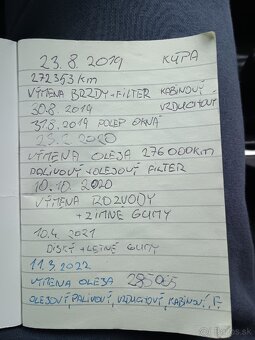 23.8 2019 KÚPA
272353 km
VÝMENA BRZDY + FILTER KABÍNOVÝ
30.8. 2019 VZDUCHOVÝ
31.8. 2019 POLEP OKNÁ
2020
VÝMENA OLEJA 276000KM
PALIVOVÝ + OLEJOVÝ FILTER
10.10. 2020
VÝMENA ROZVODY
+ ZIMNÉ GUMY
10.4. 2021
DISKY + LETNÉ GUMY
11.3. 2022
VÝMENA OLEJA
OLEJOVÝ, PALIVOVÝ, VZDUCHOVÝ, KABÍNOVÝ, F.
bazar.sk